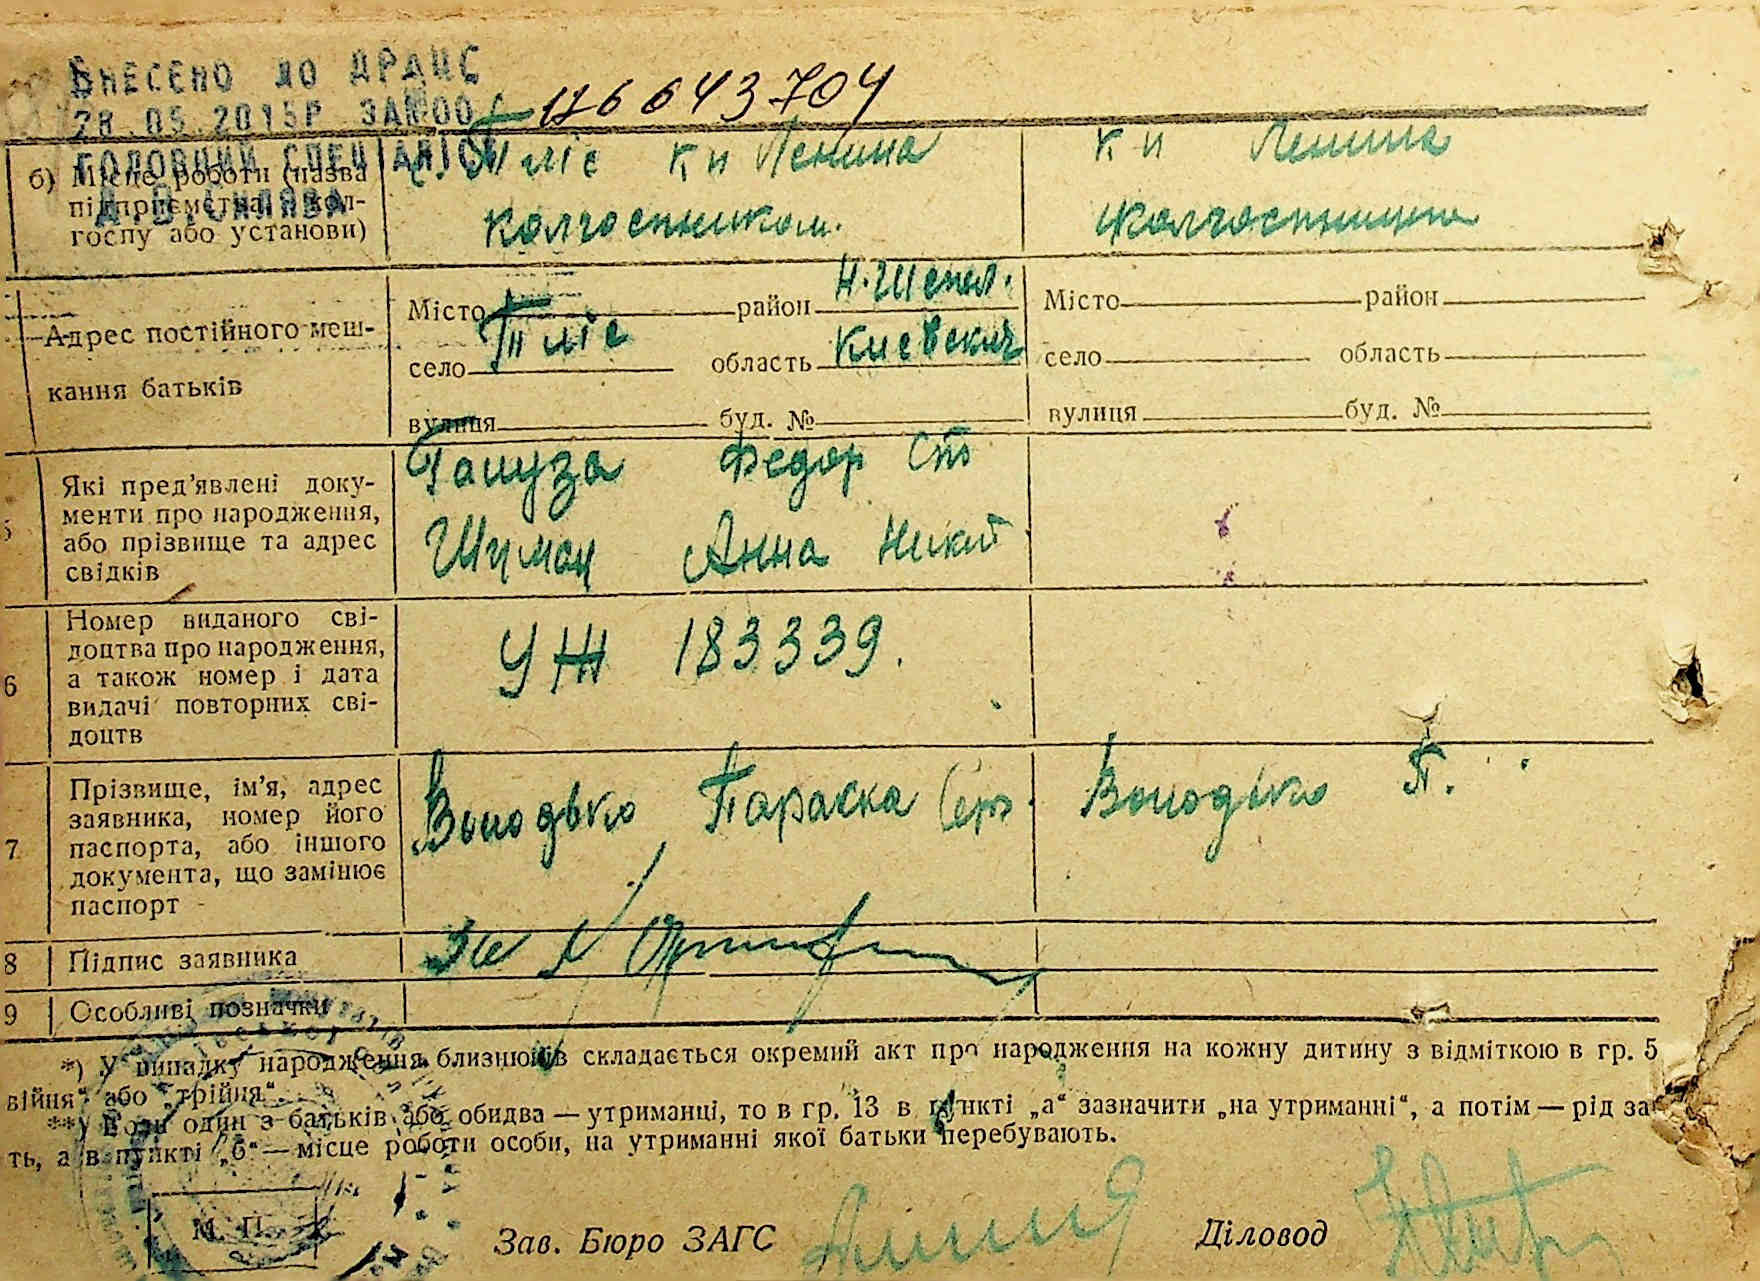 ВНЕСЕНО ДО ДРАЦС
28.05.2015Р ЗА №00
176643704
ГОЛОВНИЙ СПЕЦІАЛІСТ
б) Місце роботи (назва
підприємства, кол-
госпу або установи)
с. Тліс к п Леніна
колгоспником.
к п Леніна
колгоспниця
Адрес постійного меш-
кання батьків
Місто район Н. Шепол.
село Тліс область Киевскій
вулиця буд. №
Місто район
село область
вулиця буд. №
5 Які пред'явлені доку-
менти про народження,
або прізвище та адрес
свідків
Федор
Анна Никит
6 Номер виданого сві-
доцтва про народження,
а також номер і дата
видачі повторних сві-
доцтв
УЖ 183339.
7 Прізвище, ім'я, адрес
заявника, номер його
паспорта, або іншого
документа, що замінює
паспорт
Володько Параска
Володько П.
8 Підпис заявника
9 Особливі позначки
*) У випадку народження близнюків складається окремий акт про народження на кожну дитину з відміткою в гр. 5
війня" або „трійня".
**) Коли один з батьків або обидва — утриманці, то в гр. 13 в пункті „а" зазначити „на утриманні", а потім — рід за
ть, а в пункті „б" — місце роботи особи, на утриманні якої батьки перебувають.
М. П.
Зав. Бюро ЗАГС
Діловод